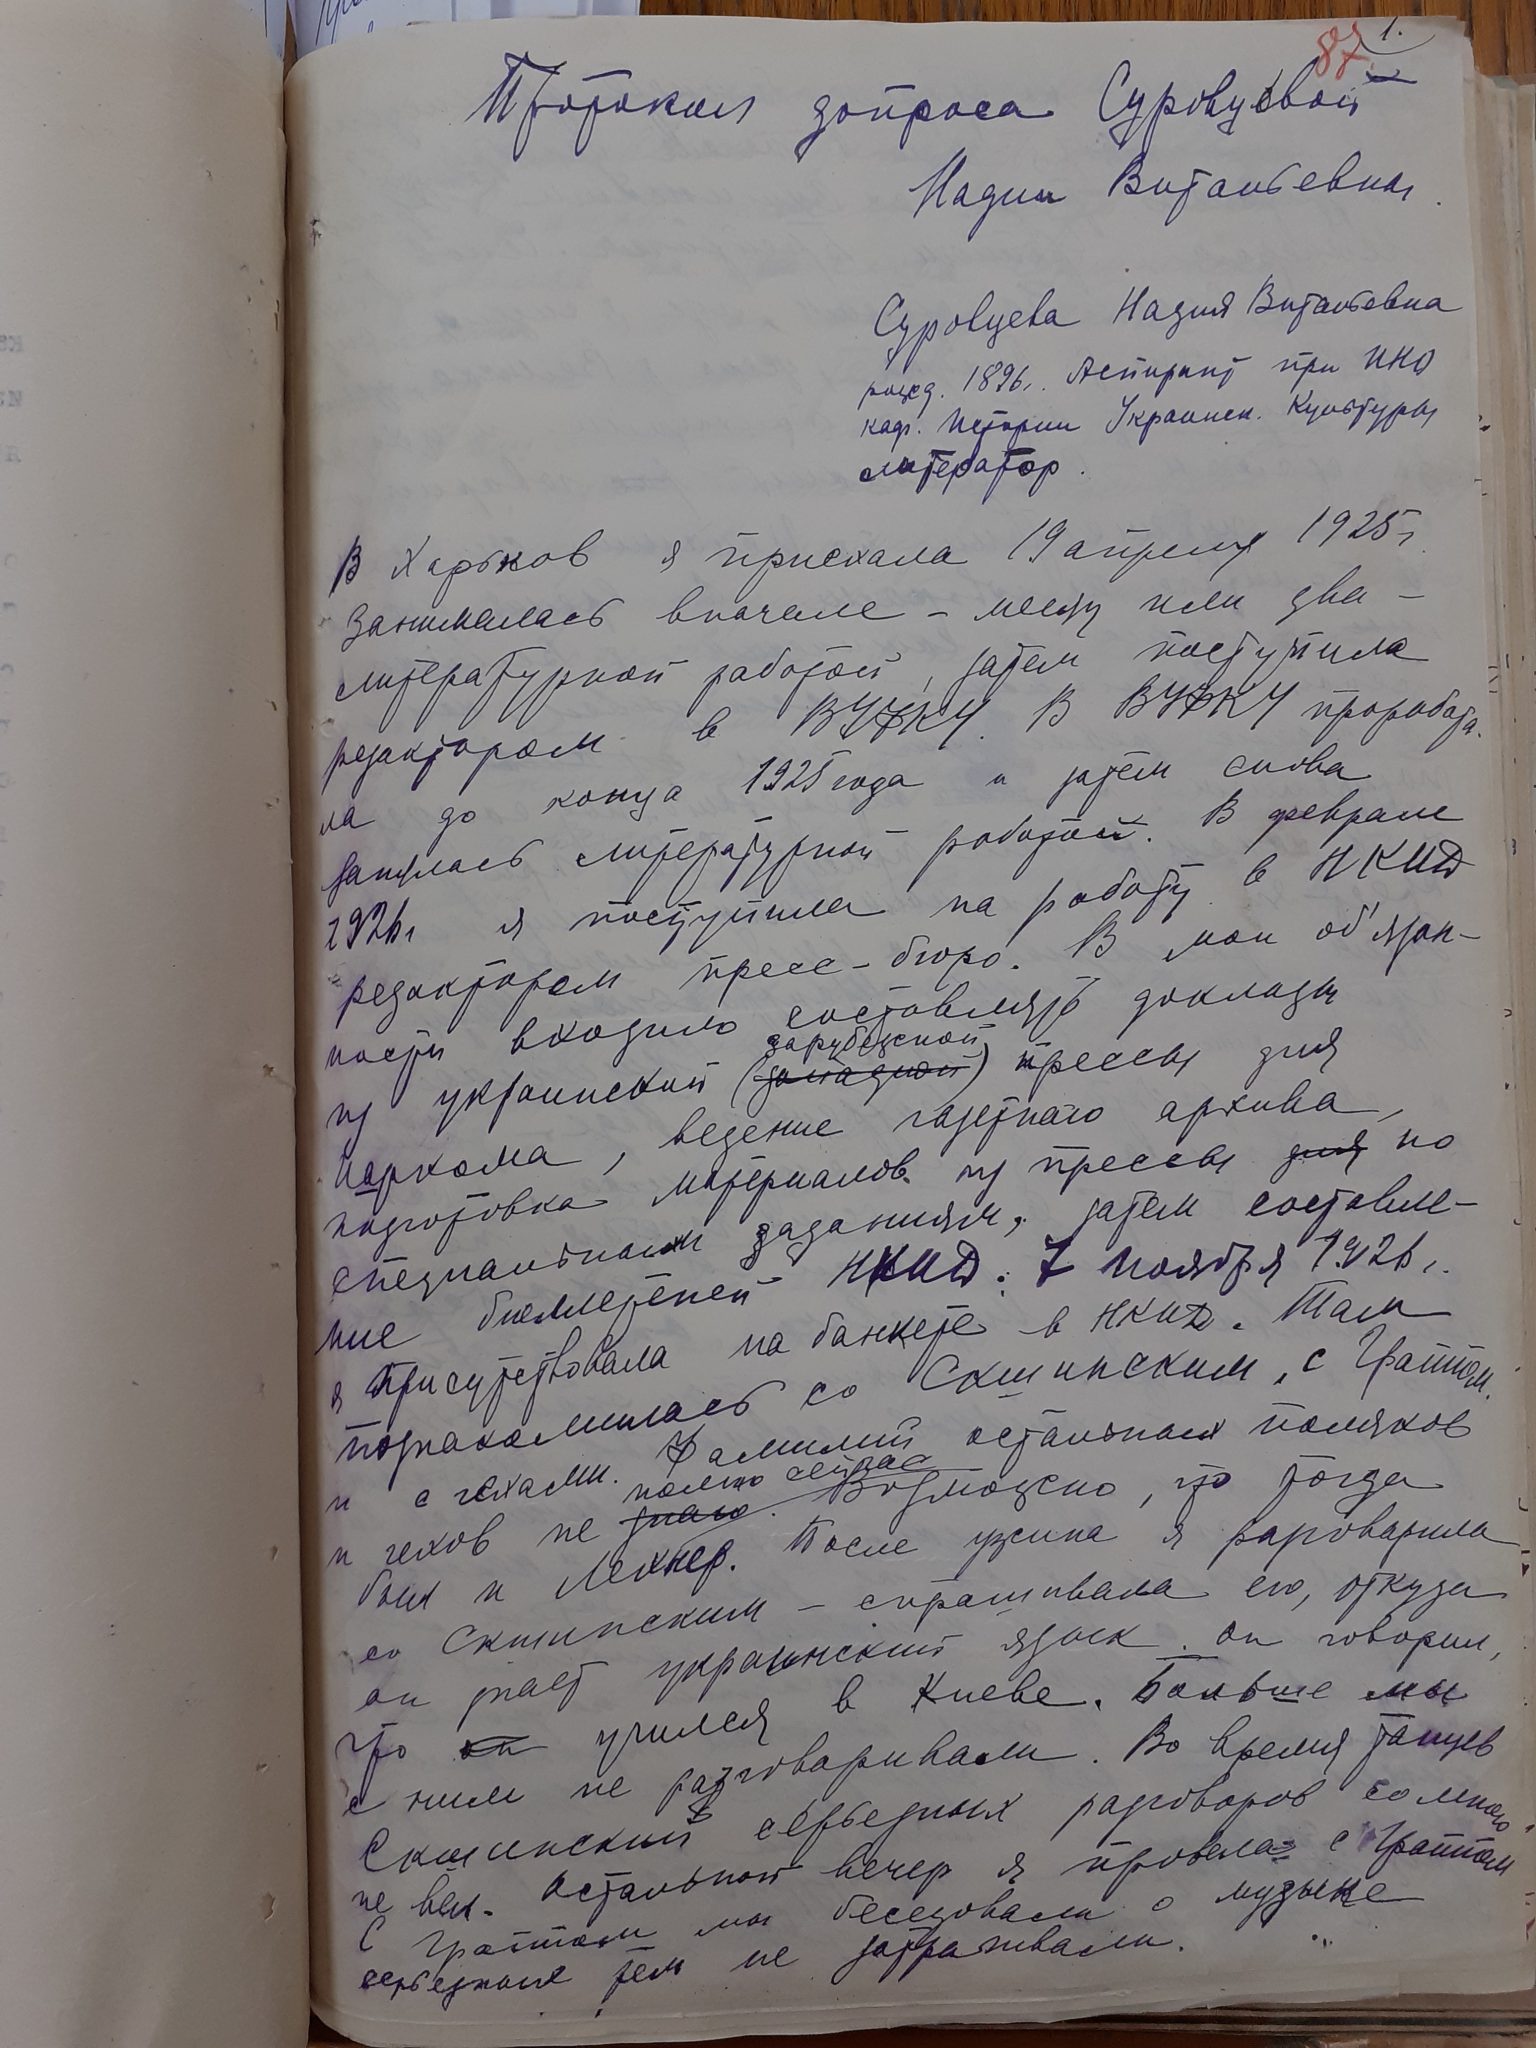 87
1.
Протокол допроса Суровцевой
Надии Витальевны.
Суровцева Надия Витальевна
рожд. 1896г. Аспирант при ИНО
каф. Истории Украинск. Культуры
литератор.
В Харьков я приехала 19 апреля 1925г.
Занималась вначале – месяц или два –
литературной работой, затем поступила
редактором в ВУФКУ. В ВУФКУ проработа-
ла до конца 1925 года и затем снова
занялась литературной работой. В феврале
1926г я поступила на работу в НКИД
редактором пресс-бюро. В мои об'язан-
ности входило составлять доклады
зарубежной
из украинской (западной) прессы для
Наркома, ведение газетного архива,
подготовка материалов из прессы для по
специальным заданиям, затем составле-
ние бюллетеней НКИД. 7 ноября 1926г.
я присутствовала на банкете в НКИД. Там
познакомилась со Скшинским, с Граппом
и с чехами. Фамилий остальных поляков
помню сейчас
и чехов не знаю. Возможно, что тогда
был и Лехнер. После ужина я разговорила
со Скшинским – спрашивала его, откуда
он знает украинский язык. Он говорил,
что он учился в Киеве. Больше мы
с ним не разговаривали. Во время танцев
Скшинский серьезных разговоров со мною
не вел. Остальной вечер я провела с Граппом
С Граппом мы беседовали о музыке
серьезных тем не затрагивали.